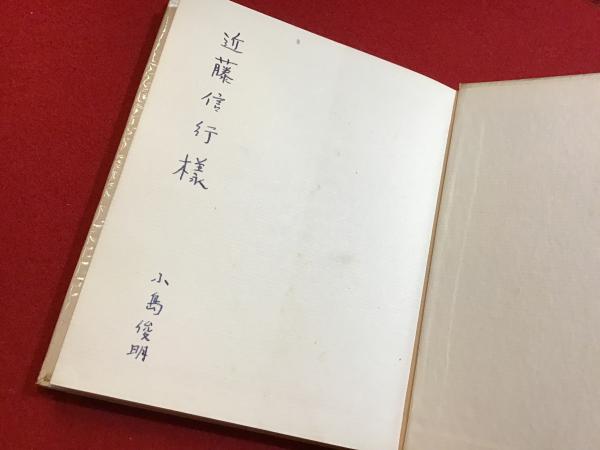 近藤信行様
小島俊明